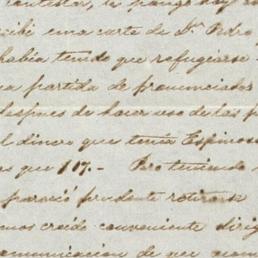 recibí una carta de Dn. Pedro
había tenido que refugiarse
a partida de pronunciados
despues de hacer uso de las
el dinero que tenía Espinosa
as que 117.- Pero teniendo
pareció prudente retirarse
emos creido conveniente dirig
comunicacion de que acom